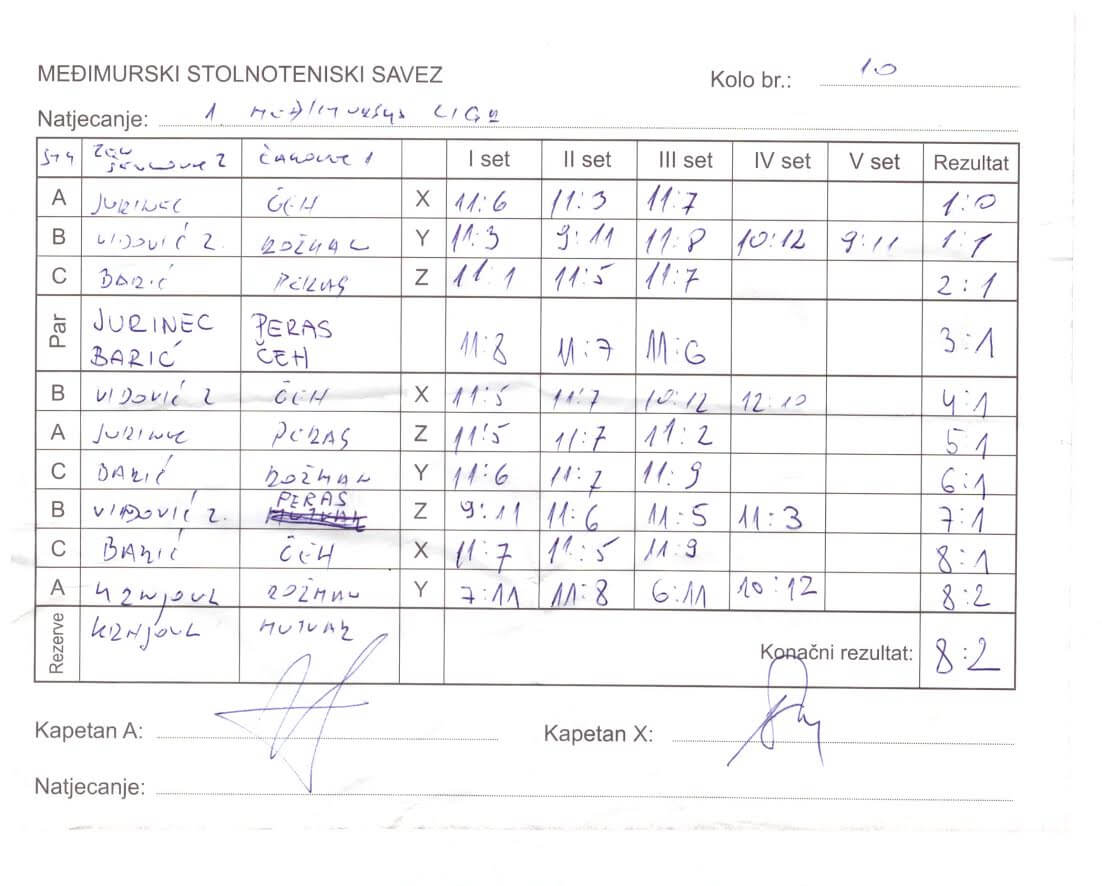 MEĐIMURSKI STOLNOTENISKI SAVEZ
Kolo br.: 10
Natjecanje: 1. MEĐIMURSKA LIGA
I set II set III set IV set V set Rezultat
A JURINEC ČEH X 11:6 11:3 11:7 1:0
B VIDOVIĆ 2. ROŽMAN Y 11:3 9:11 11:8 10:12 9:11 1:1
C BARIĆ PERAS Z 11:1 11:5 11:7 2:1
Par JURINEC PERAS 11:8 11:7 11:6 3:1
BARIĆ ČEH
B VIDOVIĆ 2 ČEH X 11:5 11:7 10:12 12:10 4:1
A JURINEC PERAS Z 11:5 11:7 11:2 5:1
C BARIĆ ROŽMAN Y 11:6 11:7 11:9 6:1
B VIDOVIĆ 2. PERAS Z 9:11 11:6 11:5 11:3 7:1
C BARIĆ ČEH X 11:7 11:5 11:9 8:1
A ROŽMAN Y 7:11 11:8 6:11 10:12 8:2
Rezerve
Konačni rezultat: 8:2
Kapetan A:
Kapetan X:
Natjecanje: